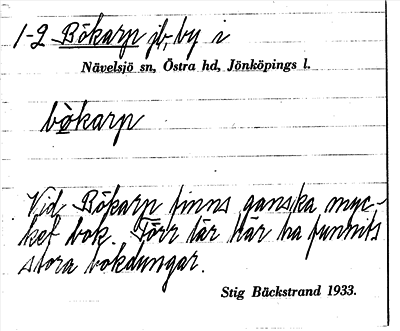 1-2 Bökarp jb, by i
Nävelsjö sn, Östra hd, Jönköpings l.
bökarp
Vid Bökarp finns ganska myc-
ket bok. Förr lär här ha funnits
stora bokdungar.
Stig Bäckstrand 1933.